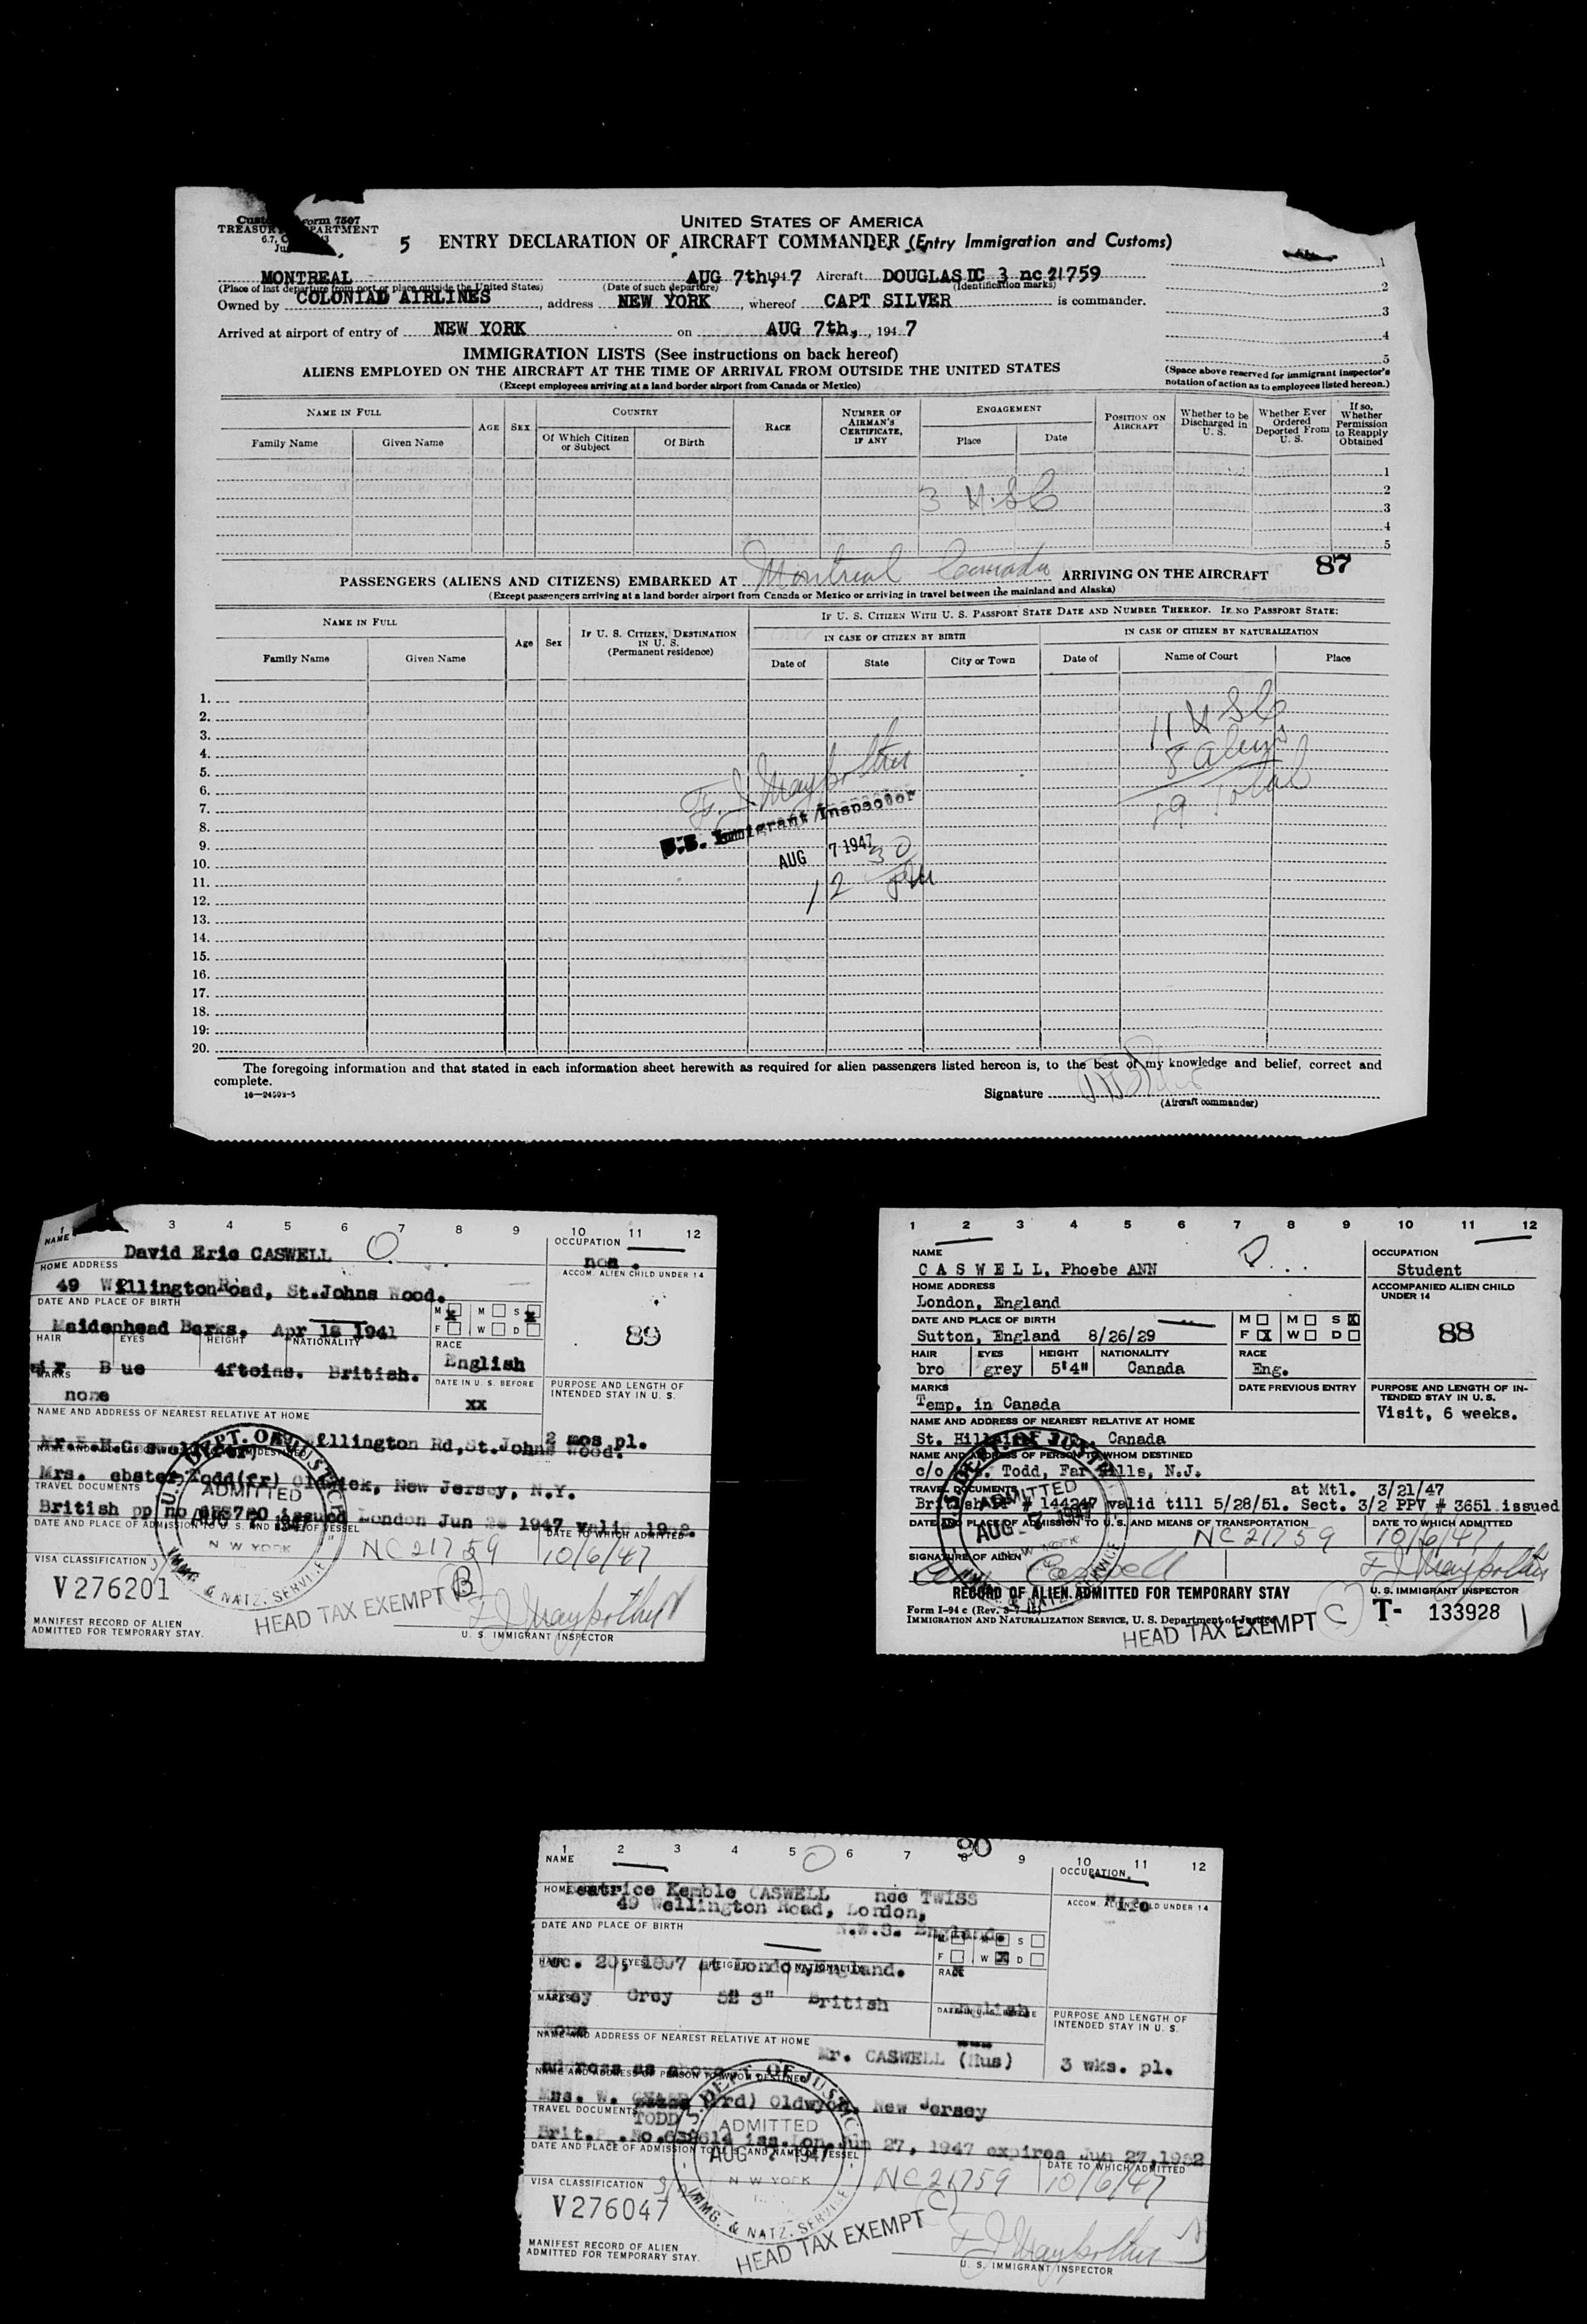 Form 7507
TREASURY DEPARTMENT
UNITED STATES OF AMERICA
5 ENTRY DECLARATION OF AIRCRAFT COMMANDER (Entry Immigration and Customs)
MONTREAL AUG 7th, 1947 Aircraft DOUGLAS DC 3 nc 21759
(Place of last departure from port or place outside the United States) (Date of such departure) (Identification marks)
Owned by COLONIAL AIRLINES, address NEW YORK, whereof CAPT SILVER is commander.
Arrived at airport of entry of NEW YORK on AUG 7th, 1947
1
2
3
4
5
(Space above reserved for immigrant inspector's notation of action as to employees listed hereon.)
IMMIGRATION LISTS (See instructions on back hereof)
ALIENS EMPLOYED ON THE AIRCRAFT AT THE TIME OF ARRIVAL FROM OUTSIDE THE UNITED STATES
(Except employees arriving at a land border airport from Canada or Mexico)
NAME IN FULL
Family Name Given Name
AGE SEX
COUNTRY
Of Which Citizen or Subject Of Birth
RACE
NUMBER OF AIRMAN'S CERTIFICATE, IF ANY
ENGAGEMENT
Place Date
POSITION ON AIRCRAFT
Whether to be Discharged in U. S.
Whether Ever Ordered Deported From U. S.
If so, Whether Permission to Reapply Obtained
1
2
3
4
5
3 USC
PASSENGERS (ALIENS AND CITIZENS) EMBARKED AT Montreal Canada ARRIVING ON THE AIRCRAFT 87
(Except passengers arriving at a land border airport from Canada or Mexico or arriving in travel between the mainland and Alaska)
NAME IN FULL
Family Name Given Name
Age Sex
IF U. S. CITIZEN, DESTINATION IN U. S. (Permanent residence)
IF U. S. CITIZEN WITH U. S. PASSPORT STATE DATE AND NUMBER THEREOF. IF NO PASSPORT STATE:
IN CASE OF CITIZEN BY BIRTH
IN CASE OF CITIZEN BY NATURALIZATION
Date of State City or Town Date of Name of Court Place
1.
2.
3.
4.
5.
6.
7.
8.
9.
10.
11.
12.
13.
14.
15.
16.
17.
18.
19.
20.
11 USC
8 Aliens
19 Total
U.S. Immigrant Inspector
AUG 7 1947
12 30 PM
The foregoing information and that stated in each information sheet herewith as required for alien passengers listed hereon is, to the best of my knowledge and belief, correct and
complete.
16—24593-5
Signature
(Aircraft commander)
1 3 4 5 6 7 8 9 10 11 12
NAME
David Eric CASWELL
OCCUPATION
non.
HOME ADDRESS
49 Wellington Road, St.Johns Wood.
ACCOM. ALIEN CHILD UNDER 14
89
DATE AND PLACE OF BIRTH
Maidenhead Berks. Apr 1941
M X M S X
F W D
HAIR EYES HEIGHT NATIONALITY
4ftoins. British.
RACE
English
MARKS
none
DATE IN U. S. BEFORE
xx
PURPOSE AND LENGTH OF INTENDED STAY IN U. S.
2 mos pl.
NAME AND ADDRESS OF NEAREST RELATIVE AT HOME
Wellington Rd, St.Johns Wood.
Mrs. ebster Todd(fr) Oldwick, New Jersey, N.Y.
TRAVEL DOCUMENTS
British pp no issued London Jun 1947
DATE AND PLACE OF ADMISSION TO U. S. AND NAME OF VESSEL
DATE TO WHICH ADMITTED
NC 21759 10/6/47
U.S. DEPT. OF JUSTICE
ADMITTED
AUG 7 1947
NEW YORK
IMMG. & NATZ. SERVICE
VISA CLASSIFICATION
V276201
HEAD TAX EXEMPT B
MANIFEST RECORD OF ALIEN
ADMITTED FOR TEMPORARY STAY.
U. S. IMMIGRANT INSPECTOR
1 2 3 4 5 6 7 8 9 10 11 12
NAME
CASWELL, Phoebe ANN
OCCUPATION
Student
HOME ADDRESS
London, England
ACCOMPANIED ALIEN CHILD UNDER 14
88
DATE AND PLACE OF BIRTH
Sutton, England 8/26/29
M M S X
F X W D
HAIR EYES HEIGHT NATIONALITY RACE
bro grey 5'4" Canada Eng.
MARKS
Temp. in Canada
DATE PREVIOUS ENTRY
PURPOSE AND LENGTH OF INTENDED STAY IN U. S.
Visit, 6 weeks.
NAME AND ADDRESS OF NEAREST RELATIVE AT HOME
St. Canada
NAME AND ADDRESS OF PERSON TO WHOM DESTINED
c/o Todd, Far Hills, N.J.
TRAVEL DOCUMENTS at Mtl. 3/21/47
British valid till 5/28/51. Sect. 3/2 PPV # 3651 issued
DATE AND PLACE OF ADMISSION TO U. S. AND MEANS OF TRANSPORTATION
DATE TO WHICH ADMITTED
NC 21759 10/6/47
ADMITTED
AUG 7 1947
NEW YORK
SIGNATURE OF ALIEN
Caswell
RECORD OF ALIEN ADMITTED FOR TEMPORARY STAY
U. S. IMMIGRANT INSPECTOR
Form I-94 c
IMMIGRATION AND NATURALIZATION SERVICE, U. S. Department of Justice
HEAD TAX EXEMPT C
T- 133928
1 2 3 4 5 6 7 8 9 10 11 12
90
NAME
OCCUPATION
Beatrice Kemble CASWELL nee TWISS
Wife
49 Wellington Road, London,
ACCOM. ALIEN CHILD UNDER 14
DATE AND PLACE OF BIRTH
England.
at London, England.
Grey 5' 3" British
English
PURPOSE AND LENGTH OF INTENDED STAY IN U. S.
3 wks. pl.
NAME AND ADDRESS OF NEAREST RELATIVE AT HOME
Mr. CASWELL (Hus)
address as above
NAME AND ADDRESS OF PERSON TO WHOM DESTINED
Mrs. W. (rd) New Jersey
TODD
TRAVEL DOCUMENTS
Brit. No. 638614 iss. Lon. Jun 27, 1947 expires Jun 27, 1952
DATE AND PLACE OF ADMISSION TO U. S. AND NAME OF VESSEL
DATE TO WHICH ADMITTED
NC 21759 10/6/47
U.S. DEPT. OF JUSTICE
ADMITTED
AUG 7 1947
NEW YORK
IMMG. & NATZ. SERVICE
VISA CLASSIFICATION
V276047
HEAD TAX EXEMPT C
MANIFEST RECORD OF ALIEN
ADMITTED FOR TEMPORARY STAY.
U. S. IMMIGRANT INSPECTOR